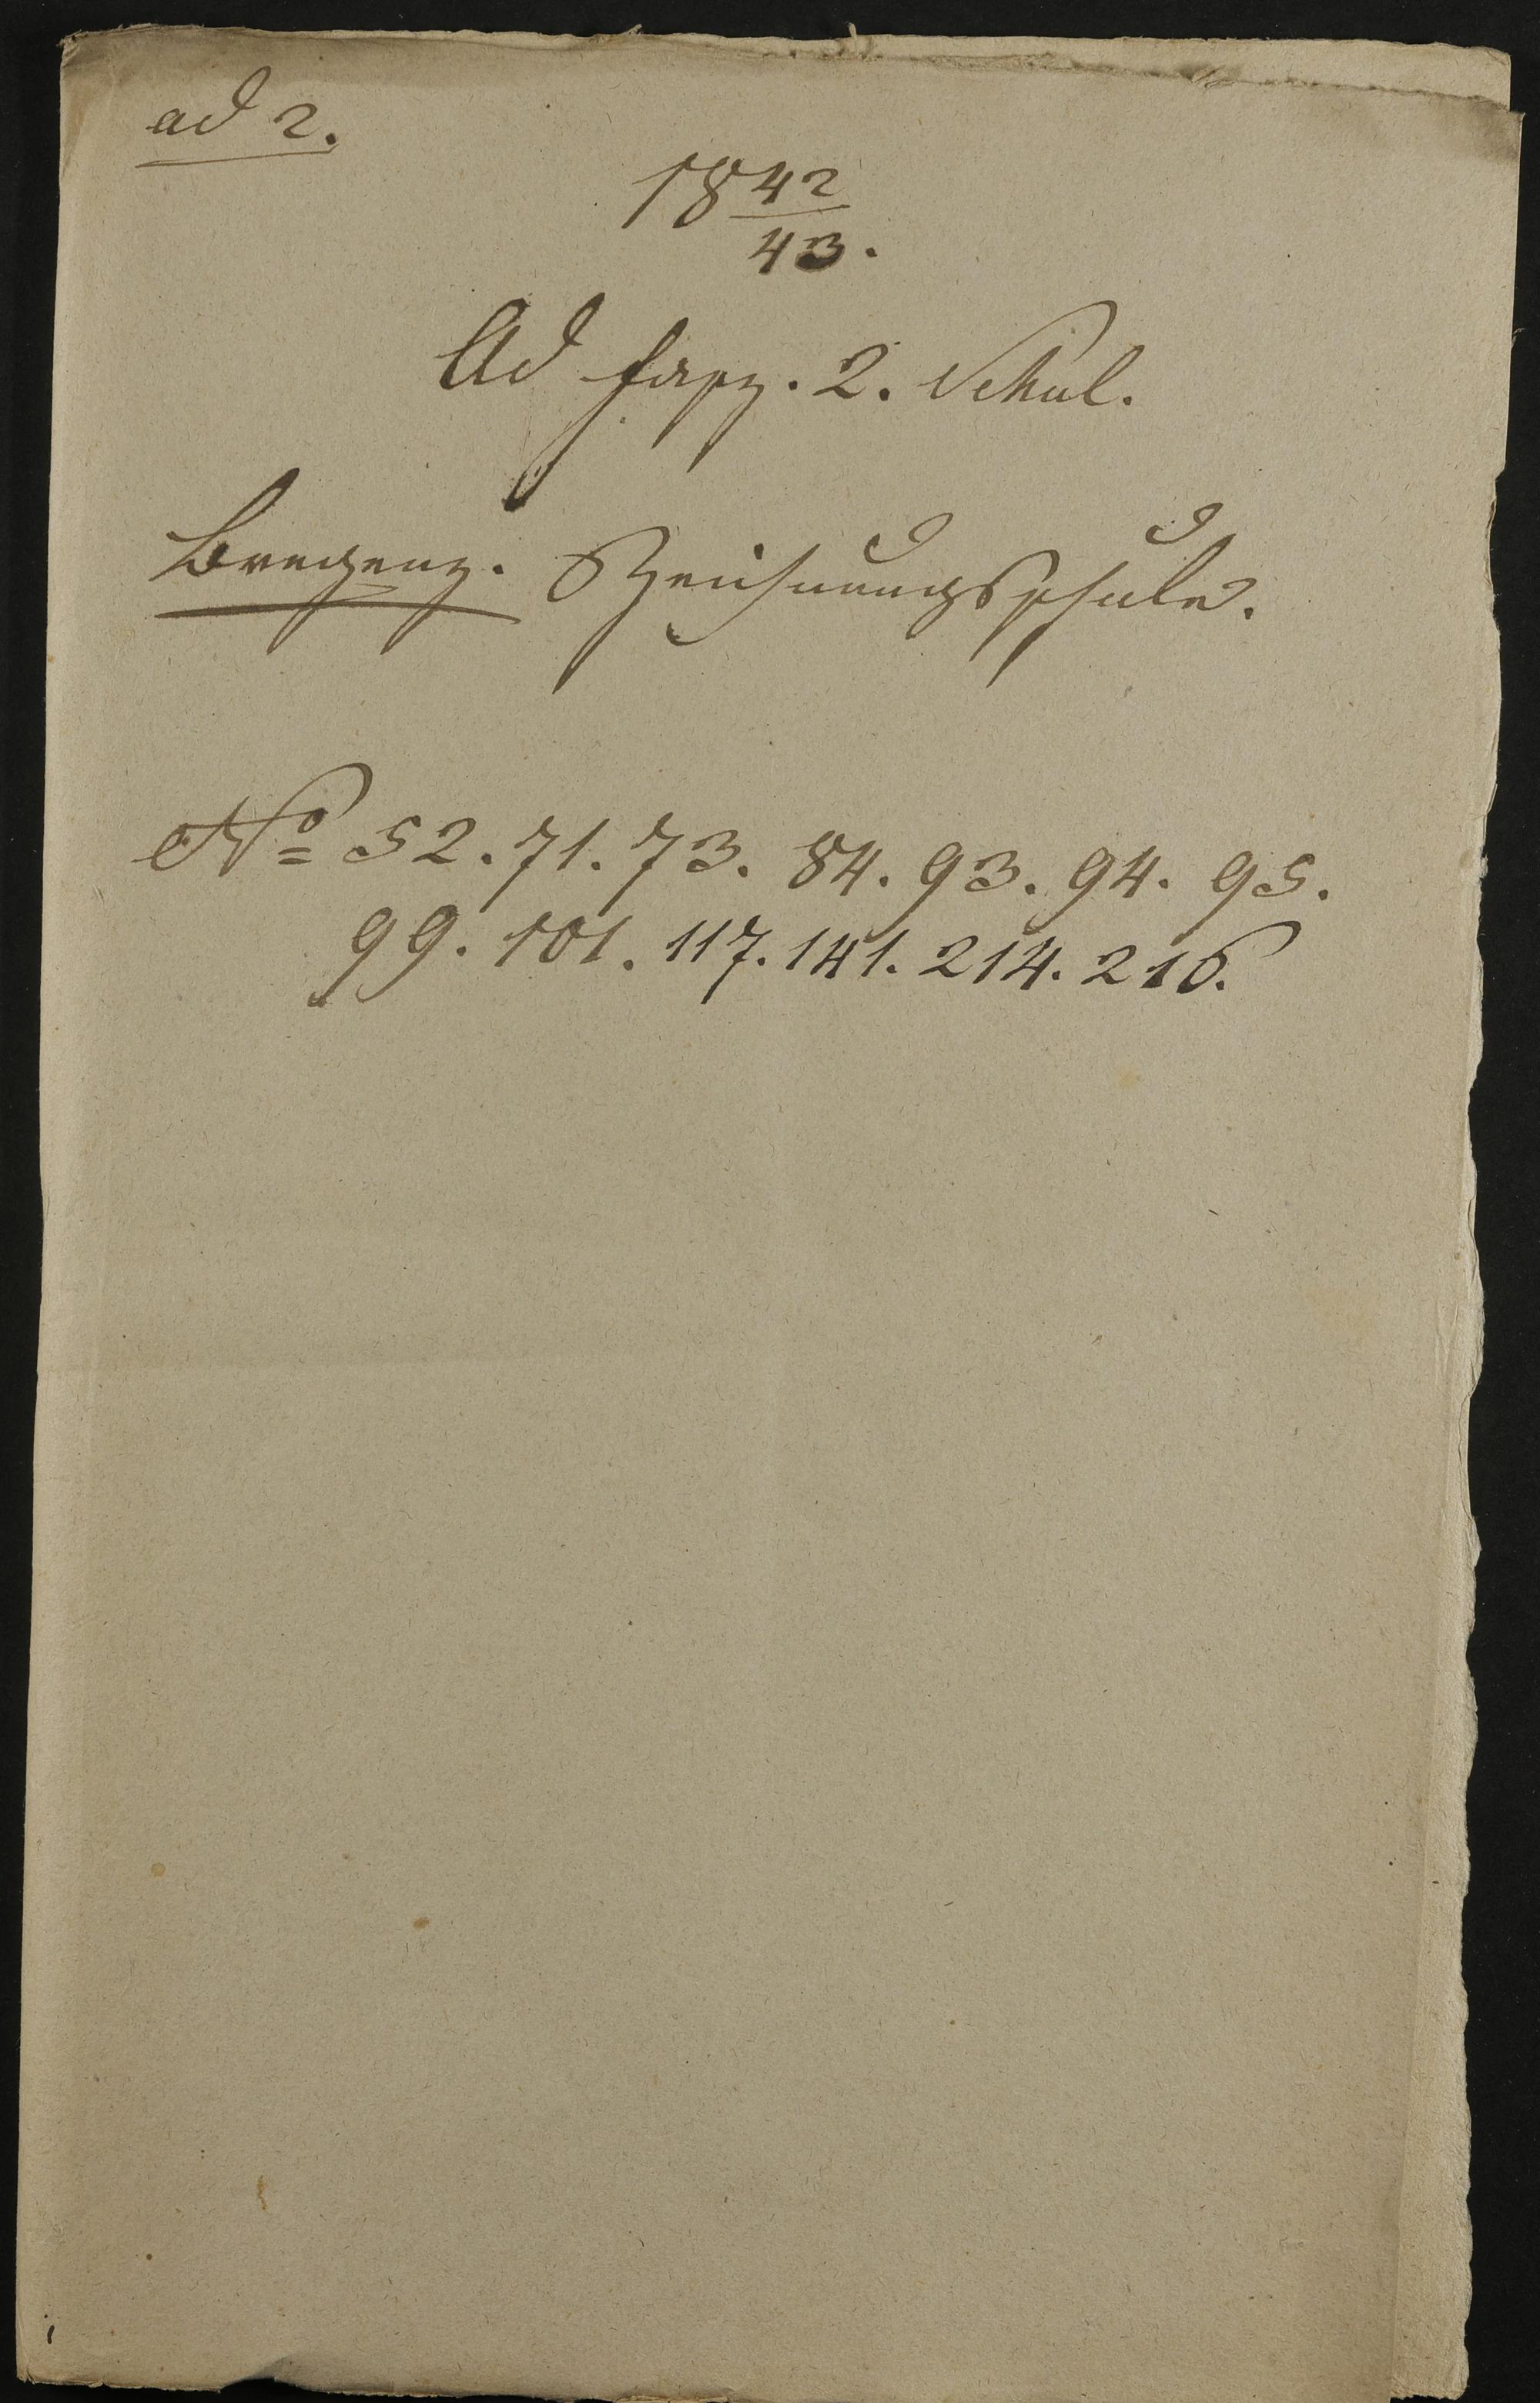 ad 2.
18 42
43.
Ad fasz. 2. Schul.
Bregenz. Zeichnungsschule.
No 52. 71. 73. 84. 93. 94. 95.
99. 101. 117. 141. 214. 216.